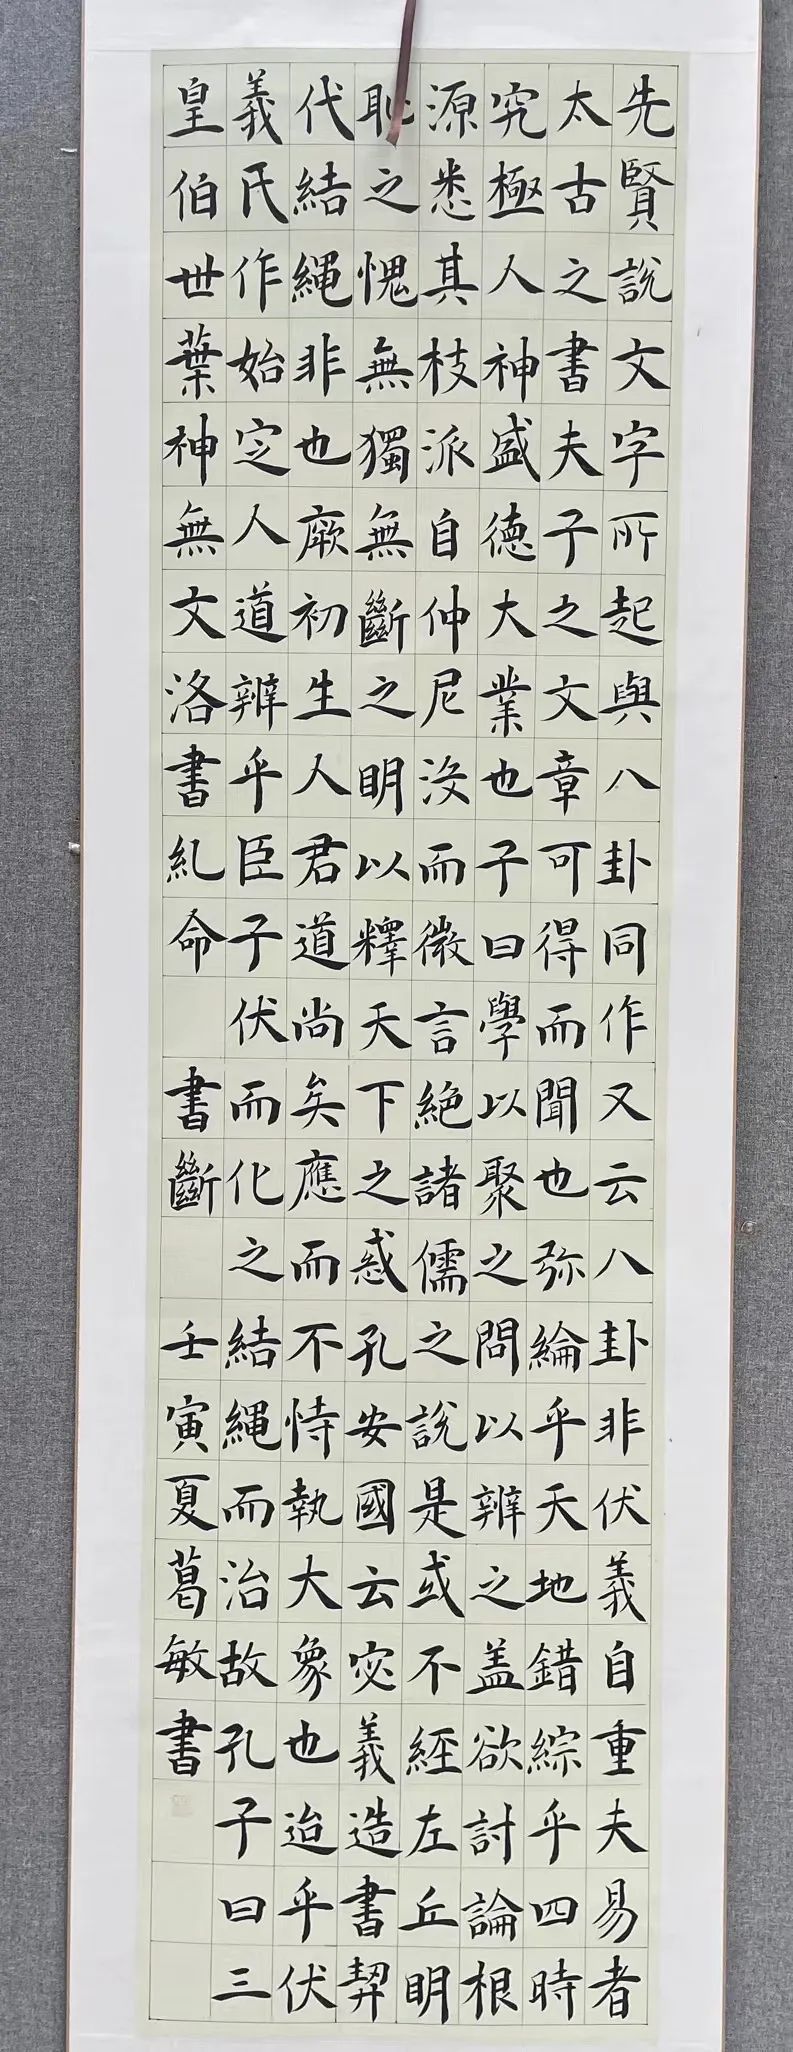 先賢說文字所起與八卦同作又云八卦非伏義自重夫易者
太古之書夫子之文章可得而聞也弥綸乎天地錯綜乎四時
究極人神盛德大業也子曰學以聚之問以辨之盖欲討論根
源悉其枝派自仲尼沒而微言絶諸儒之說是或不經左丘明
恥之愧無獨無斷之明以釋天下之惑孔安國云宓義造書契
代結繩非也厥初生人君道尚矣應而不恃執大象也迨乎伏
義氏作始定人道辨乎臣子伏而化之結繩而治故孔子曰三
皇伯世葉神無文洛書糺命 書斷 壬寅夏葛敏書